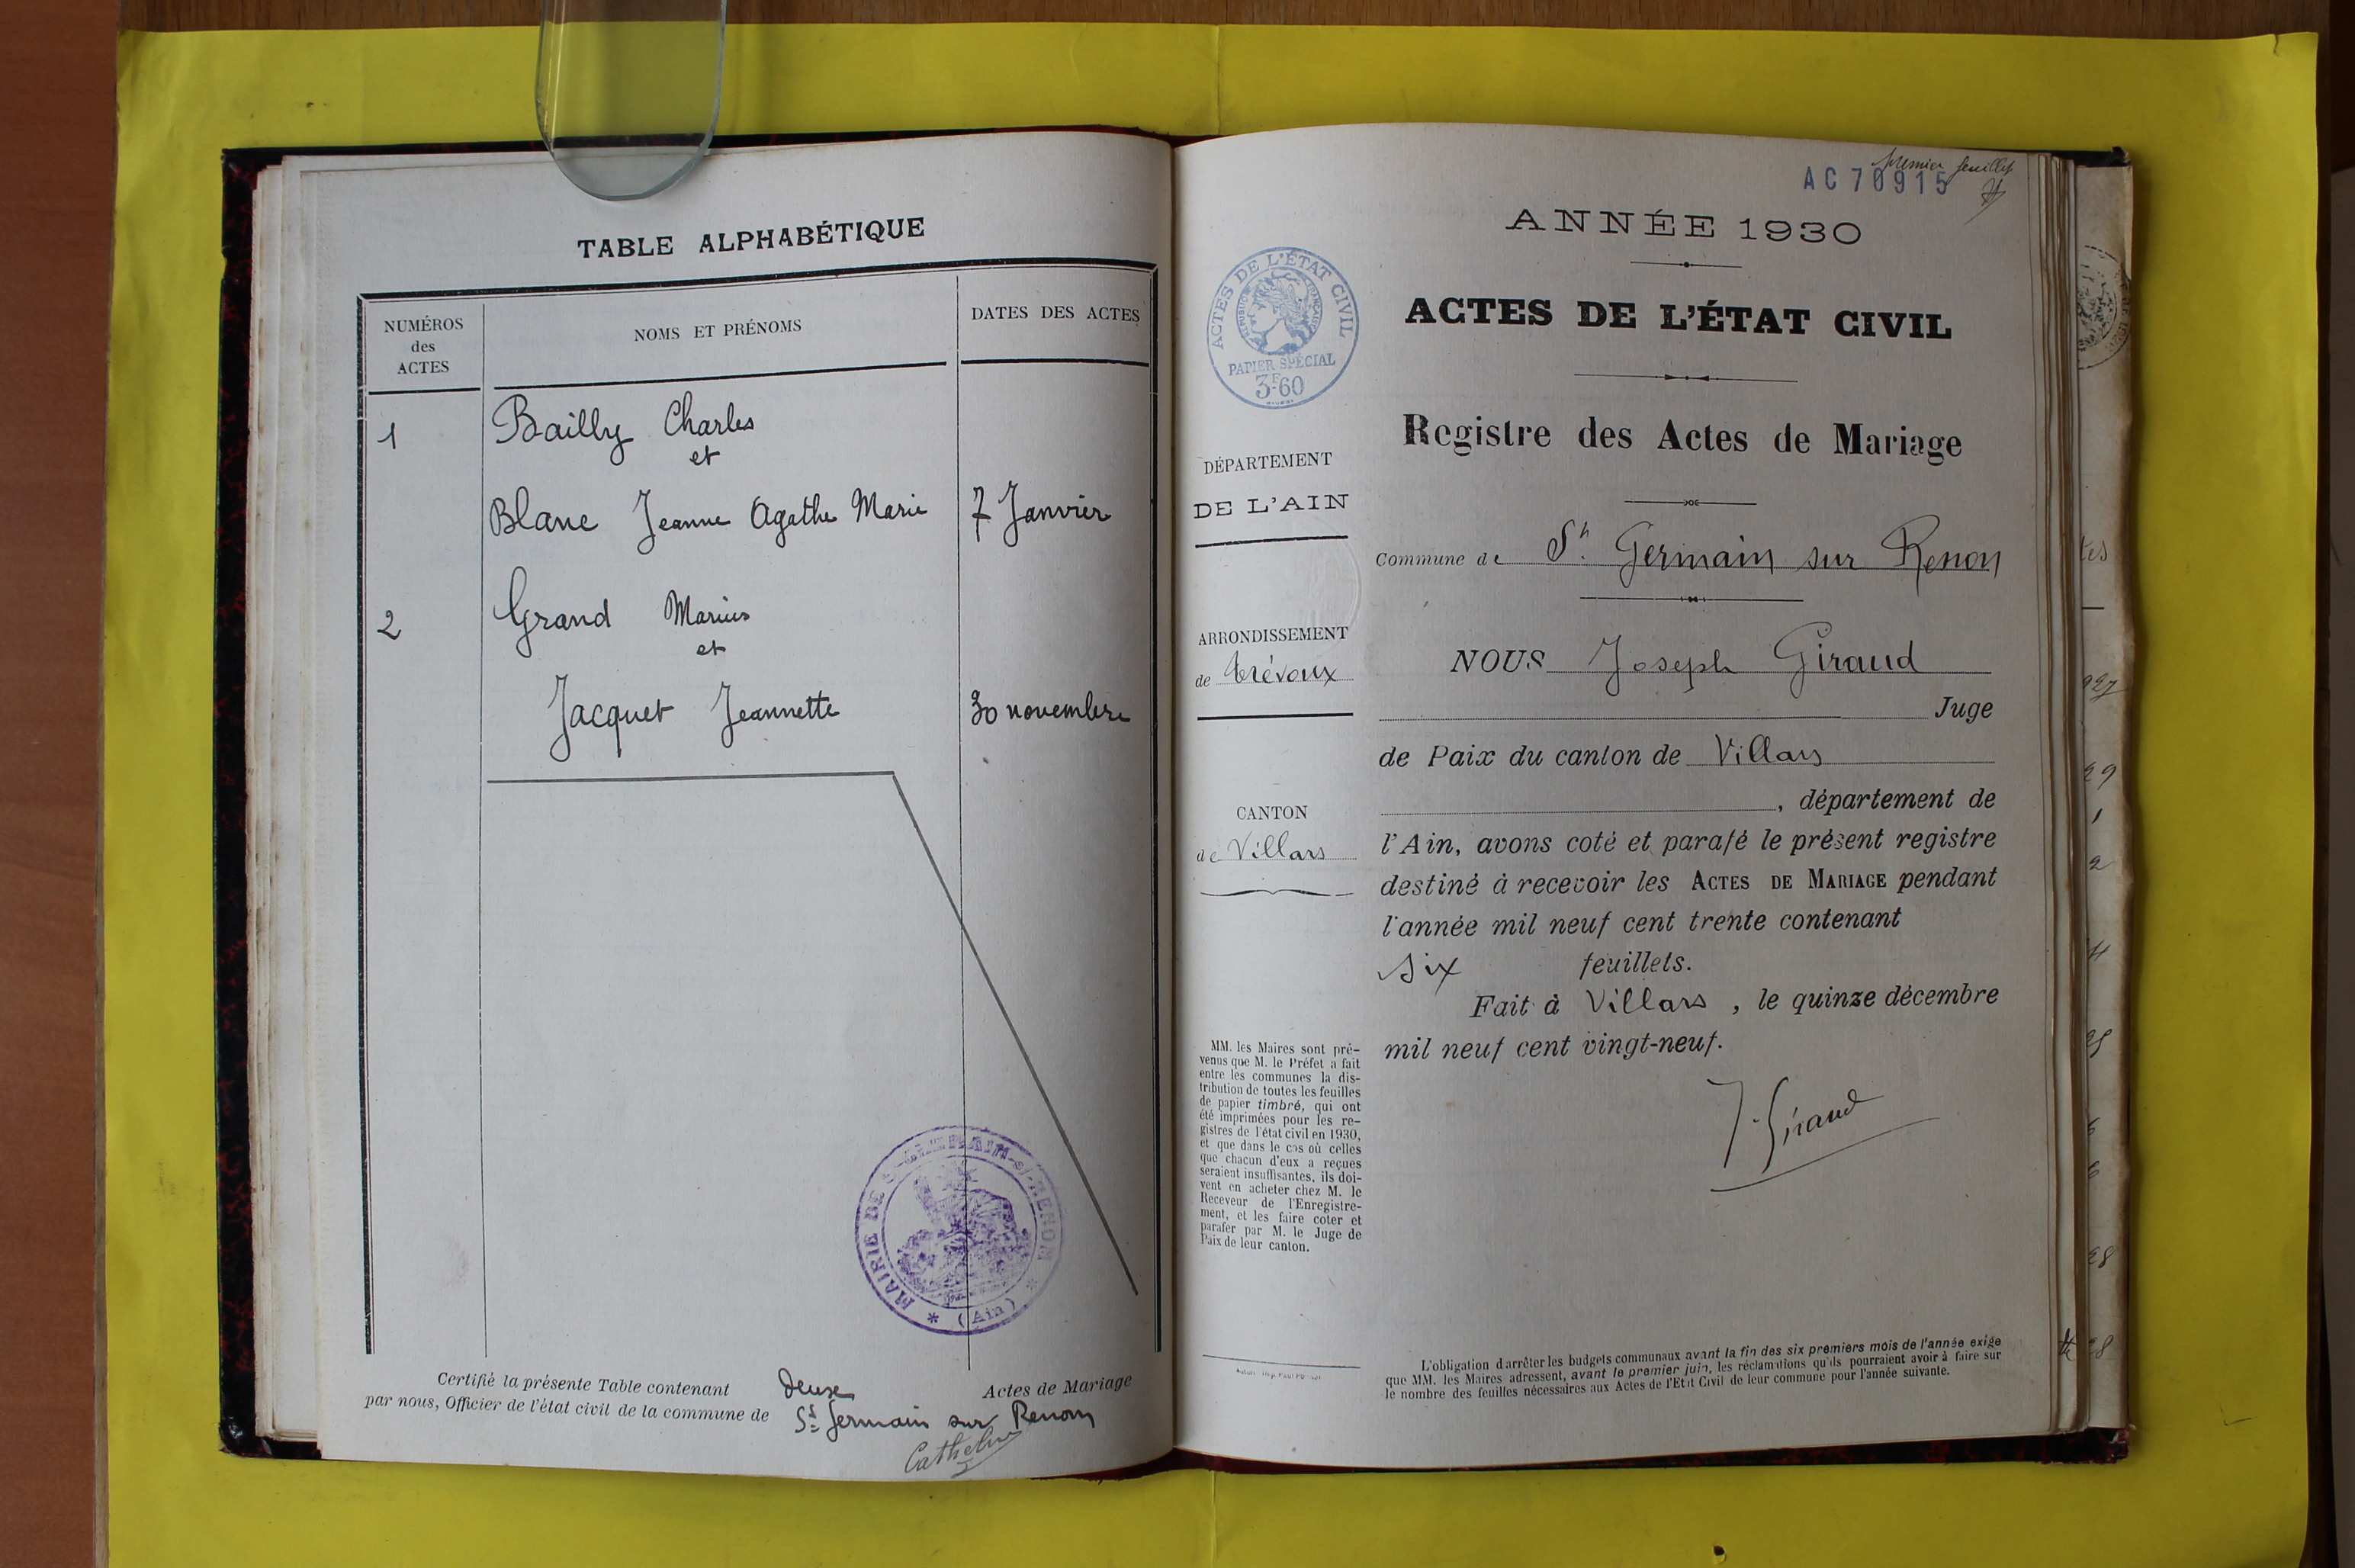 TABLE ALPHABÉTIQUE
NUMÉROS
des
ACTES
NOMS ET PRÉNOMS
DATES DES ACTES
1
Bailly Charles
et
Blanc Jeanne Agathe Marie
7 Janvier
2
Grand Marius
et
Jacquet Jeannette
30 novembre
MAIRIE DE St GERMAIN-s/-RENON
* (Ain) *
Certifié la présente Table contenant deux Actes de Mariage
par nous, Officier de l'état civil de la commune de St Germain sur Renon
premier feuillet
AC 70915
ANNÉE 1930
ACTES DE L'ÉTAT CIVIL
RÉPUBLIQUE FRANÇAISE
PAPIER SPÉCIAL
3F60
ACTES DE L'ÉTAT CIVIL
Registre des Actes de Mariage
DÉPARTEMENT
DE L'AIN
ARRONDISSEMENT
de Trévoux
CANTON
de Villars
MM. les Maires sont pré-
venus que M. le Préfet a fait
entre les communes la dis-
tribution de toutes les feuilles
de papier timbré, qui ont
été imprimées pour les re-
gistres de l'état civil en 1930,
et que dans le cas où celles
que chacun d'eux a reçues
seraient insuffisantes, ils doi-
vent en acheter chez M. le
Receveur de l'Enregistre-
ment, et les faire coter et
parafer par M. le Juge de
Paix de leur canton.
Commune de St. Germain sur Renon
NOUS Joseph Giraud
Juge
de Paix du canton de Villars
, département de
l'Ain, avons coté et parafé le présent registre
destiné à recevoir les ACTES DE MARIAGE pendant
l'année mil neuf cent trente contenant
six feuillets.
Fait à Villars, le quinze décembre
mil neuf cent vingt-neuf.
J. Giraud
L'obligation d'arrêter les budgets communaux avant la fin des six premiers mois de l'année exige
que MM. les Maires adressent, avant le premier juin, les réclamations qu'ils pourraient avoir à faire sur
le nombre des feuilles nécessaires aux Actes de l'Etat Civil de leur commune pour l'année suivante.